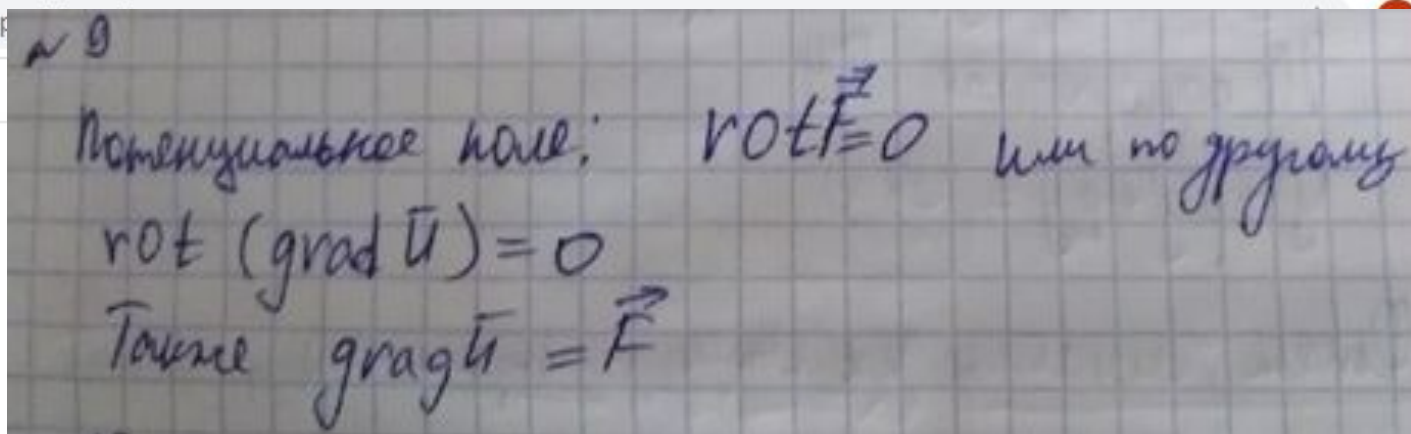 № 9
Потенциальное поле: rot F⃗ = 0 или по другому
rot (grad ū) = 0
Также grad ū = F⃗